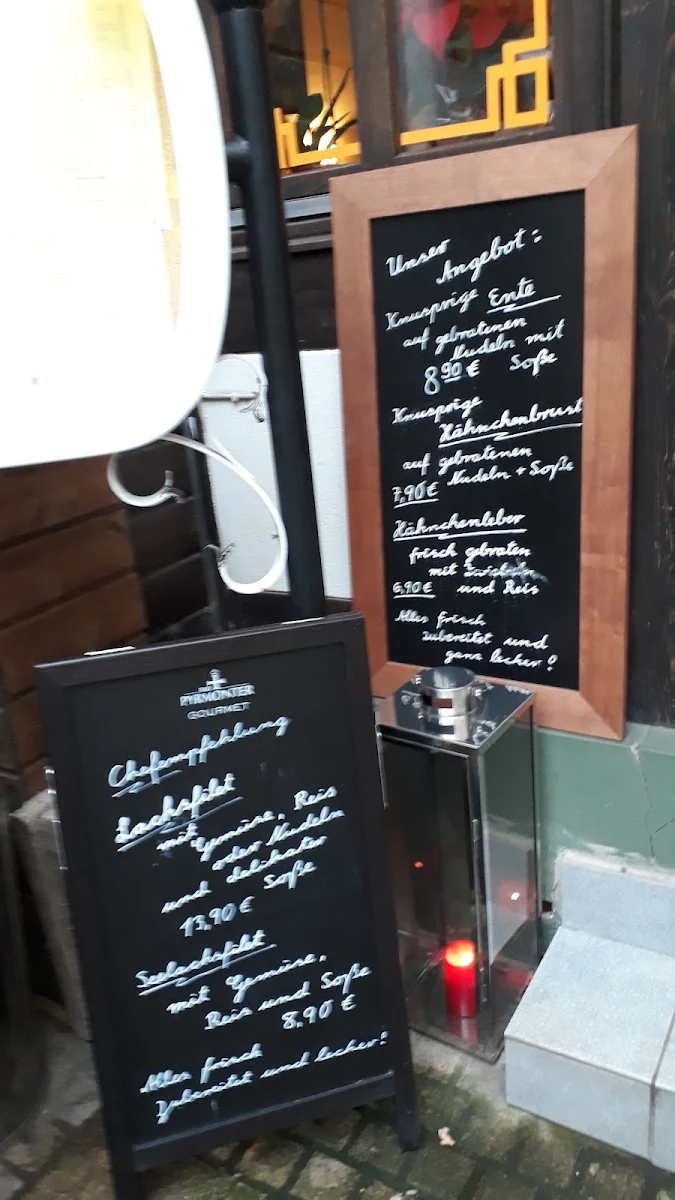 Unser
Angebot:
Knusprige Ente
auf gebratenen
Nudeln mit
8,90 € Soße
Knusprige
Hähnchenbrust
auf gebratenen
7,90 € Nudeln + Soße
Hähnchenleber
frisch gebraten
mit
6,90 € und Reis
Alles frisch
zubereitet und
ganz lecker!
PYRMONTER
GOURMET
Chefempfehlung
Lachsfilet
mit Gemüse, Reis
oder Nudeln
und delikater
13,90 € Soße
Seelachsfilet
mit Gemüse,
Reis und Soße
8,90 €
Alles frisch
Zubereitet und lecker!